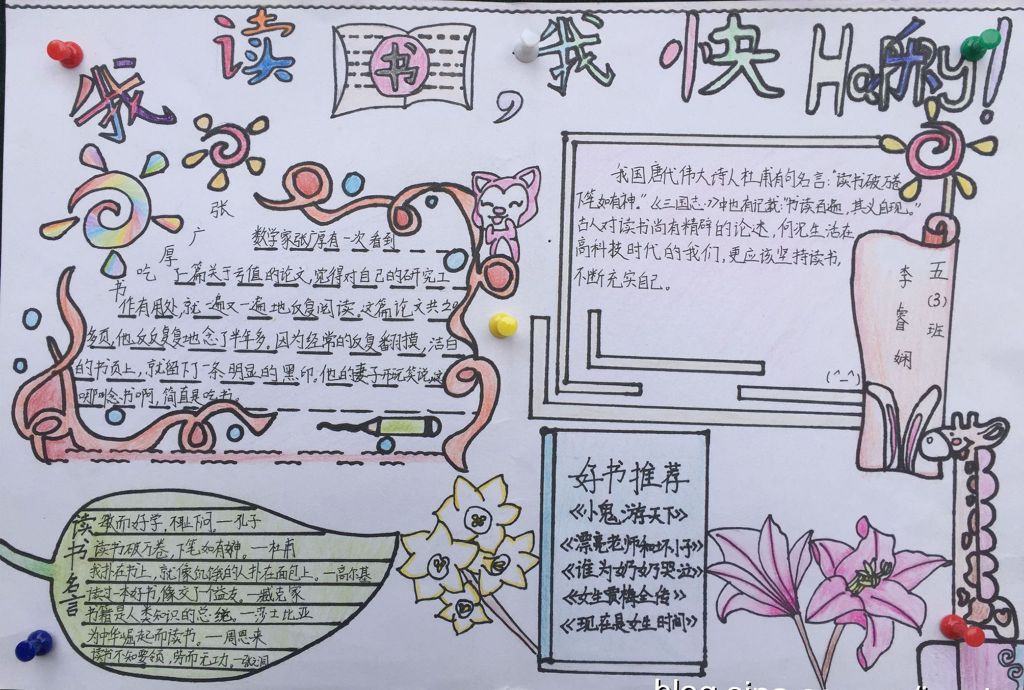 我读书，我快 Happy!
张广厚吃书
数学家张广厚有一次看到
了一篇关于亏值的论文,觉得对自己的研究工
作有用处,就一遍又一遍地反复阅读。这篇论文共20
多页,他反反复复地念了半年多。因为经常的反复翻摸,洁白
的书页上,就留下了一条明显的黑印。他的妻子开玩笑说,这
哪叫念书啊,简直是吃书。
我国唐代伟大诗人杜甫有句名言:“读书破万卷
下笔如有神。”《三国志》中也有记载:“书读百遍,其义自现。”
古人对读书尚有精辟的论述,何况生活在
高科技时代的我们,更应该坚持读书,
不断充实自己。
(^_^)
五(3)班
李睿娴
读书名言
敏而好学,不耻下问。—孔子
读书破万卷,下笔如有神。—杜甫
我扑在书上,就像饥饿的人扑在面包上。—高尔基
读过一本好书,像交了个益友。—臧克家
书籍是人类知识的总统。—莎士比亚
为中华崛起而读书。—周恩来
读书不知要领,劳而无功。
好书推荐
《小鬼,游天下》
《漂亮老师和坏小子》
《谁为奶奶哭泣》
《女生黄梅全传》
《现在是女生时间》